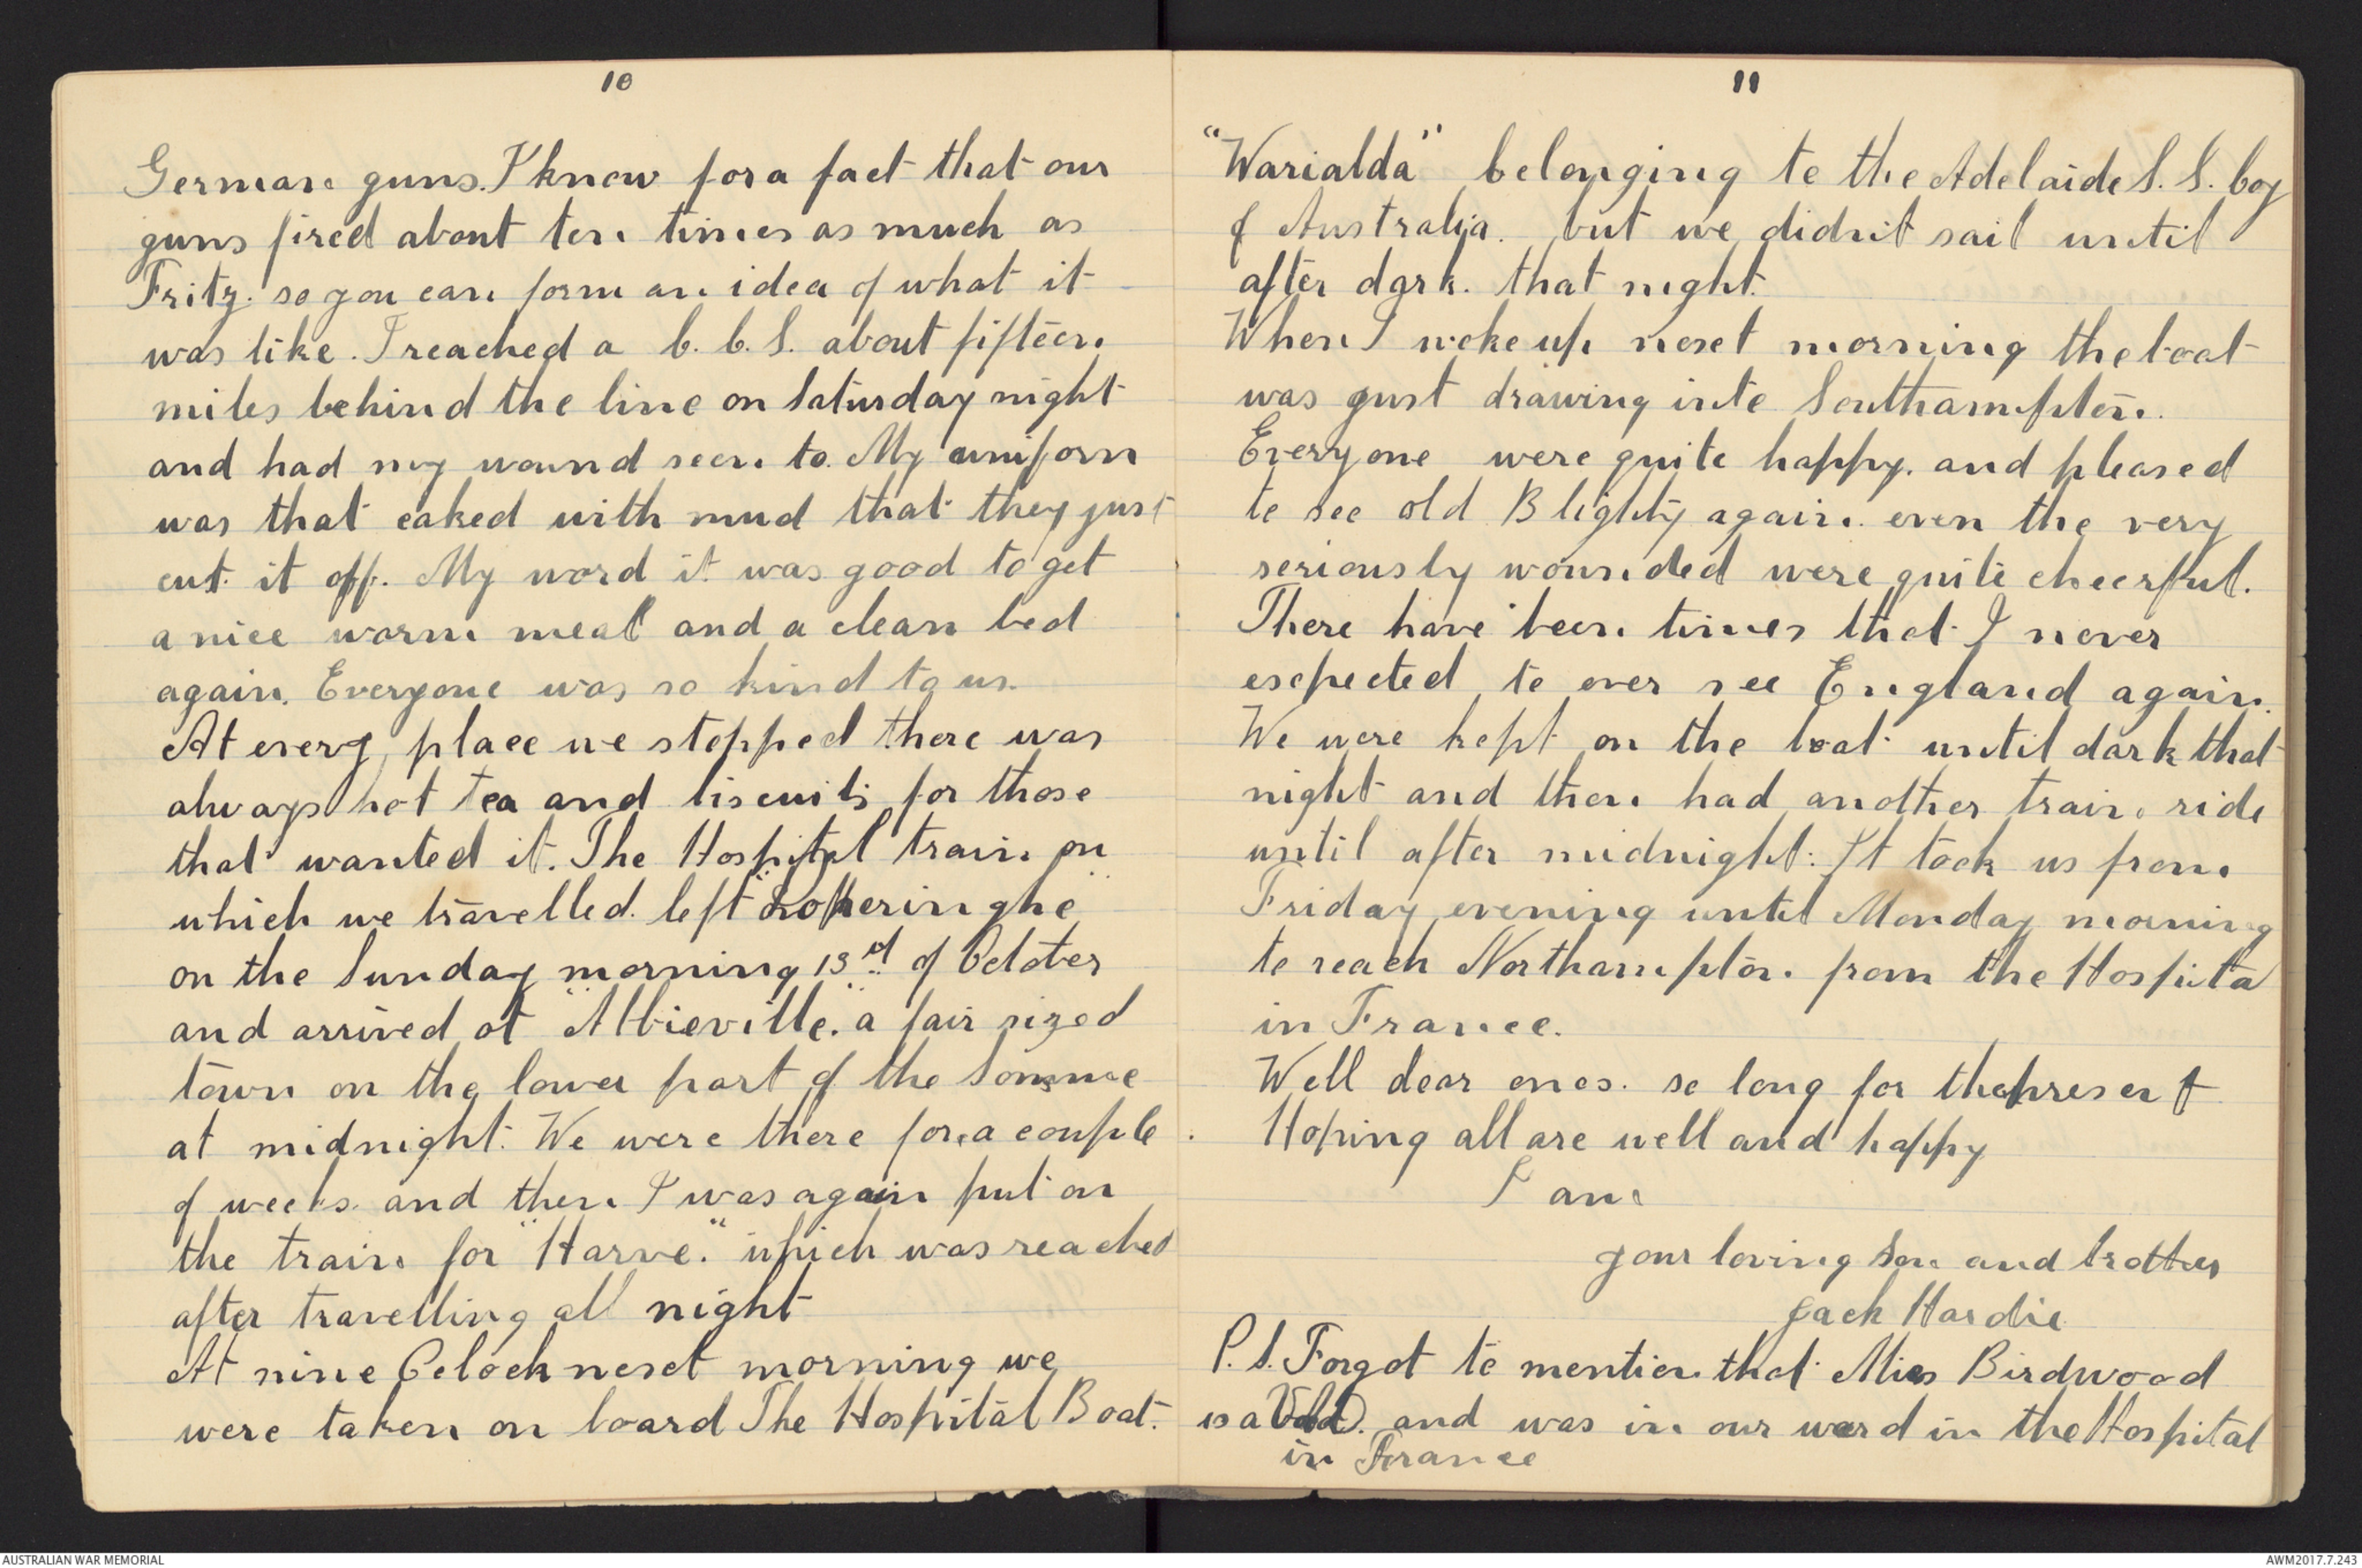 10
German guns. I know for a fact that our
guns fired about ten times as much as
Fritz. so you can form an idea of what it
was like. I reached a C.C.S. about fifteen
miles behind the line on Saturday night
and had my wound seen to. My uniform
was that caked with mud that they just
cut it off. My word it was good to get
a nice warm meal and a clean bed
again. Everyone was so kind to us.
At every place we stopped there was
always hot tea and biscuits for those
that wanted it. The Hospital train on
which we travelled left "Popheringhe"
on the Sunday morning 13th of October
and arrived at "Abbieville". a fair sized
town on the lower part of the Somme
at midnight. We were there for a couple
of weeks. and then I was again put on
the train for "Harve." which was reached
after travelling all night
At nine Oclock next morning we
were taken on board The Hospital Boat.
11
"Warialda" belonging to the Adelaide S.S. Coy
of Australia. but we didn't sail until
after dark. that night.
When I woke up next morning the boat
was just drawing into Southampton.
Everyone were quite happy. and pleased
to see old Blighty again. even the very
seriously wounded were quite cheerful.
There have been times that I never
expected to ever see England again.
We were kept on the boat until dark that
night and then had another train ride
until after midnight. It took us from
Friday evening until Monday morning
to reach Northampton from the Hospita
in France.
Well dear ones. so long for the present
Hoping all are well and happy
I am
your loving Son and brother
Jack Hardie
P.S. Forgot to mention that Miss Birdwood
is a and was in our ward in the Hospital
in France
AUSTRALIAN WAR MEMORIAL
AWM2017.7.243